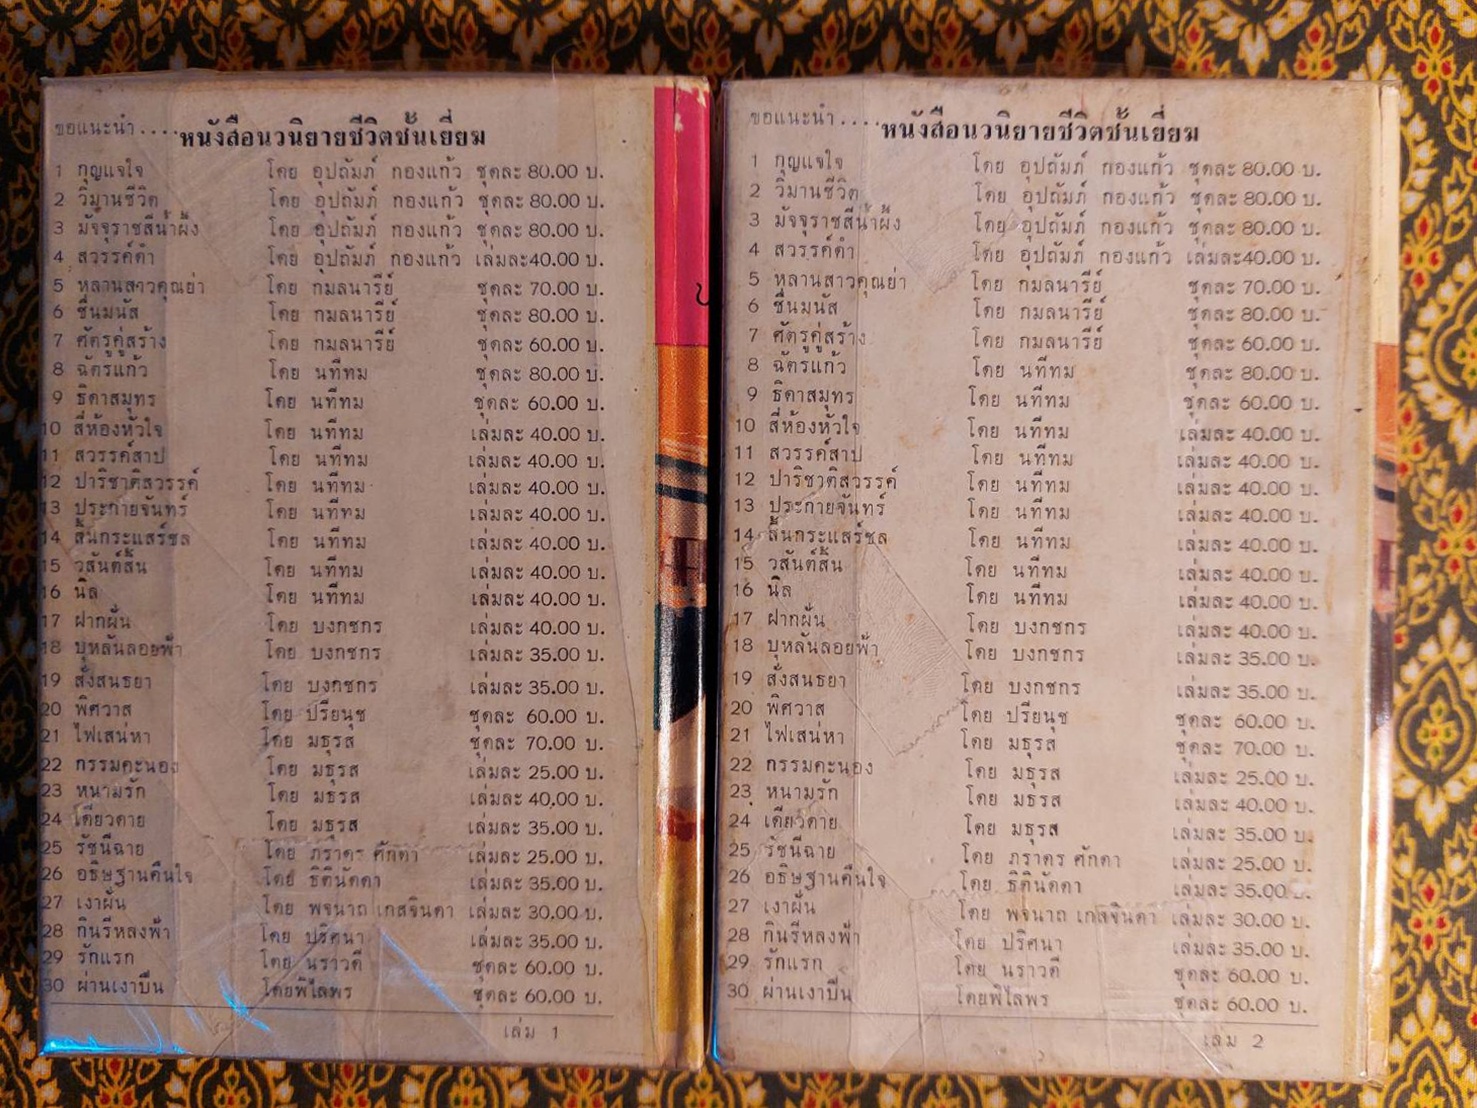 ขอแนะนำ....หนังสือนวนิยายชีวิตชั้นเยี่ยม
1 กุญแจใจ โดย อุปถัมภ์ กองแก้ว ชุดละ 80.00 บ.
2 วิมานชีวิต โดย อุปถัมภ์ กองแก้ว ชุดละ 80.00 บ.
3 มัจจุราชสีน้ำผึ้ง โดย อุปถัมภ์ กองแก้ว ชุดละ 80.00 บ.
4 สวรรค์ดำ โดย อุปถัมภ์ กองแก้ว เล่มละ40.00 บ.
5 หลานสาวคุณย่า โดย กมลนารีย์ ชุดละ 70.00 บ.
6 ชื่นมนัส โดย กมลนารีย์ ชุดละ 80.00 บ.
7 ศัตรูคู่สร้าง โดย กมลนารีย์ ชุดละ 60.00 บ.
8 ฉัตรแก้ว โดย นทีทม ชุดละ 80.00 บ.
9 ธิดาสมุทร โดย นทีทม ชุดละ 60.00 บ.
10 สี่ห้องหัวใจ โดย นทีทม เล่มละ 40.00 บ.
11 สวรรค์สาป โดย นทีทม เล่มละ 40.00 บ.
12 ปาริชาติสวรรค์ โดย นทีทม เล่มละ 40.00 บ.
13 ประกายจันทร์ โดย นทีทม เล่มละ 40.00 บ.
14 สิ้นกระแสร์ชล โดย นทีทม เล่มละ 40.00 บ.
15 วสันต์สิ้น โดย นทีทม เล่มละ 40.00 บ.
16 นิล โดย นทีทม เล่มละ 40.00 บ.
17 ฝากฝัน โดย บงกชกร เล่มละ 40.00 บ.
18 บุหลันลอยฟ้า โดย บงกชกร เล่มละ 35.00 บ.
19 สั่งสนธยา โดย บงกชกร เล่มละ 35.00 บ.
20 พิศวาส โดย ปรียนุช ชุดละ 60.00 บ.
21 ไฟเสน่หา โดย มธุรส ชุดละ 70.00 บ.
22 กรรมคะนอง โดย มธุรส เล่มละ 25.00 บ.
23 หนามรัก โดย มธุรส เล่มละ 40.00 บ.
24 เดียวดาย โดย มธุรส เล่มละ 35.00 บ.
25 รัชนีฉาย โดย ภราดร ศักดา เล่มละ 25.00 บ.
26 อธิษฐานคืนใจ โดย ธิตินัดดา เล่มละ 35.00 บ.
27 เงาฝัน โดย พจนาถ เกสจินดา เล่มละ 30.00 บ.
28 กินรีหลงฟ้า โดย ปริศนา เล่มละ 35.00 บ.
29 รักแรก โดย นราวดี ชุดละ 60.00 บ.
30 ผ่านเงาปืน โดยพิไลพร ชุดละ 60.00 บ.
เล่ม 1
ขอแนะนำ....หนังสือนวนิยายชีวิตชั้นเยี่ยม
1 กุญแจใจ โดย อุปถัมภ์ กองแก้ว ชุดละ 80.00 บ.
2 วิมานชีวิต โดย อุปถัมภ์ กองแก้ว ชุดละ 80.00 บ.
3 มัจจุราชสีน้ำผึ้ง โดย อุปถัมภ์ กองแก้ว ชุดละ 80.00 บ.
4 สวรรค์ดำ โดย อุปถัมภ์ กองแก้ว เล่มละ40.00 บ.
5 หลานสาวคุณย่า โดย กมลนารีย์ ชุดละ 70.00 บ.
6 ชื่นมนัส โดย กมลนารีย์ ชุดละ 80.00 บ.
7 ศัตรูคู่สร้าง โดย กมลนารีย์ ชุดละ 60.00 บ.
8 ฉัตรแก้ว โดย นทีทม ชุดละ 80.00 บ.
9 ธิดาสมุทร โดย นทีทม ชุดละ 60.00 บ.
10 สี่ห้องหัวใจ โดย นทีทม เล่มละ 40.00 บ.
11 สวรรค์สาป โดย นทีทม เล่มละ 40.00 บ.
12 ปาริชาติสวรรค์ โดย นทีทม เล่มละ 40.00 บ.
13 ประกายจันทร์ โดย นทีทม เล่มละ 40.00 บ.
14 สิ้นกระแสร์ชล โดย นทีทม เล่มละ 40.00 บ.
15 วสันต์สิ้น โดย นทีทม เล่มละ 40.00 บ.
16 นิล โดย นทีทม เล่มละ 40.00 บ.
17 ฝากฝัน โดย บงกชกร เล่มละ 40.00 บ.
18 บุหลันลอยฟ้า โดย บงกชกร เล่มละ 35.00 บ.
19 สั่งสนธยา โดย บงกชกร เล่มละ 35.00 บ.
20 พิศวาส โดย ปรียนุช ชุดละ 60.00 บ.
21 ไฟเสน่หา โดย มธุรส ชุดละ 70.00 บ.
22 กรรมคะนอง โดย มธุรส เล่มละ 25.00 บ.
23 หนามรัก โดย มธุรส เล่มละ 40.00 บ.
24 เดียวดาย โดย มธุรส เล่มละ 35.00 บ.
25 รัชนีฉาย โดย ภราดร ศักดา เล่มละ 25.00 บ.
26 อธิษฐานคืนใจ โดย ธิตินัดดา เล่มละ 35.00 บ.
27 เงาฝัน โดย พจนาถ เกสจินดา เล่มละ 30.00 บ.
28 กินรีหลงฟ้า โดย ปริศนา เล่มละ 35.00 บ.
29 รักแรก โดย นราวดี ชุดละ 60.00 บ.
30 ผ่านเงาปืน โดยพิไลพร ชุดละ 60.00 บ.
เล่ม 2